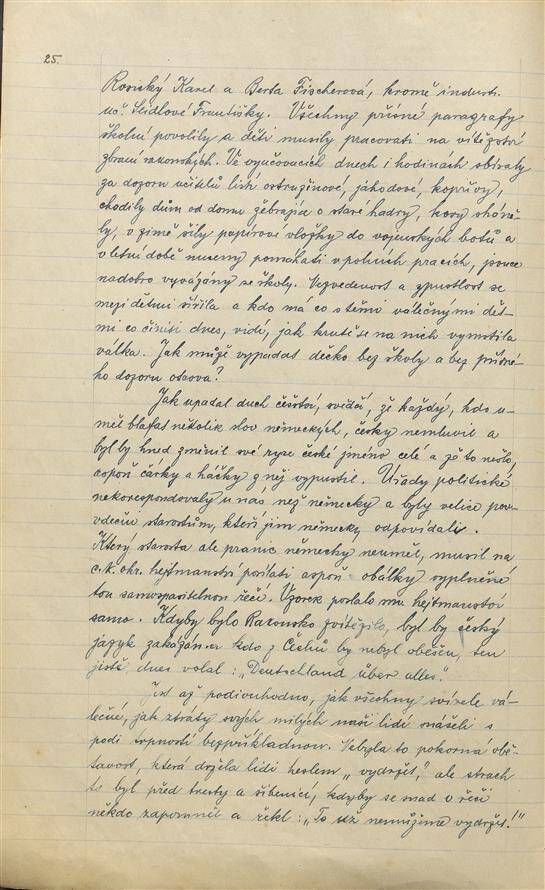 25.
Rosický Karel a Berta Fischerová, kromě industr.
uč. Seidlové Františky. Všechny přísné paragrafy
školní povolily a děti musily pracovati na vítězství
zbraní rakouských. Ve vyučovacích dnech i hodinách sbíraly
za dozoru učitelů listí ostružinové, jahodové, kopřivy,
chodily dům od domu žebrajíce o staré hadry, kovy sháně-
ly, v zimě šily papírové vložky do vojenských botů a
v letní době musely pomáhati v polních pracích, jsouce
nadobro vyvázány ze školy. Nezvedenost a zpustlost se
mezi dětmi šířila a kdo má co s těmi válečnými dět-
mi co činiti dnes, vidí, jak krutě se na nich vymstila
válka. Jak může vypadat děcko bez školy a bez přísné-
ho dozoru otcova?
Jak upadal duch češství, svědčí, že každý, kdo u-
měl blafat několik slov německých, česky nemluvil a
byl by hned změnil své ryze české jméno celé a že to nešlo,
aspoň čárky a háčky z něj vypustil. Úřady politické
nekorespondovaly u nás než německy a byly velice pov-
děčny starostům, kteří jim německy odpovídali.
Který starosta ale pranic německy neuměl, musil na
c.k. okr. hejtmanství posílati aspoň obálky vyplněné
tou samospasitelnou řečí. Vzorek poslalo mu hejtmanství
samo. Kdyby bylo Rakousko zvítězilo, byl by český
jazyk zakázán a kdo z Čechů by nebyl oběšen, ten
jistě dnes volal: „Deutschland über alles".
Jest až podivuhodno, jak všechny svízele vá-
lečné, jak ztráty svých milých naši lidé snášeli s
podi trpností bezpříkladnou. Nebyla to pokorná obě-
tavost, která držela lidi heslem „vydržet", ale strach
to byl před tresty a šibenicí, kdyby se snad v řeči
někdo zapomněl a řekl: „To už nemůžeme vydržet!"